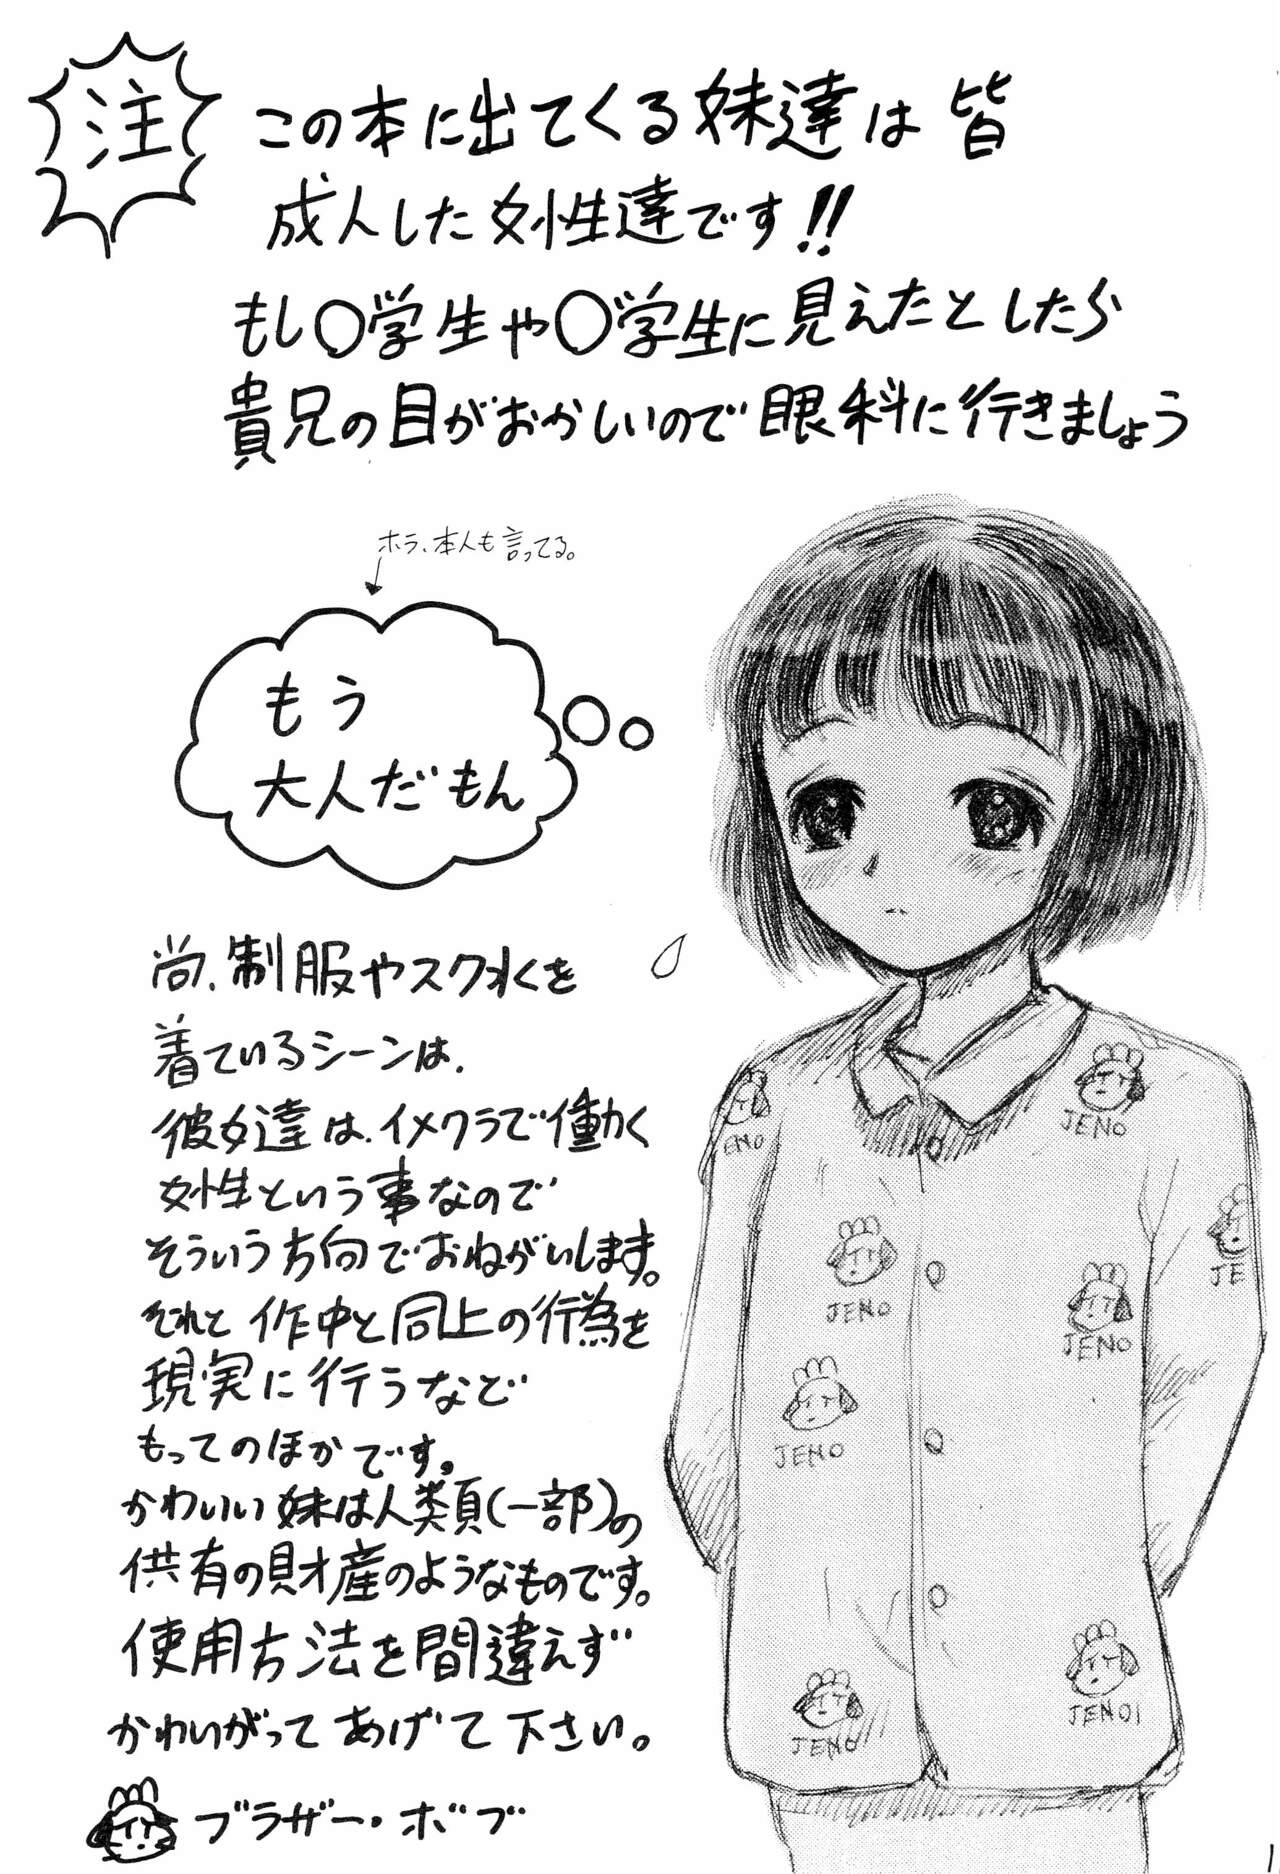 注
この本に出てくる妹達は皆
成人した女性達です!!
もし○学生や○学生に見えたとしたら
貴兄の目がおかしいので眼科に行きましょう
ホラ、本人も言ってる。
もう
大人だもん
尚、制服やスク水を
着ているシーンは、
彼女達は、イメクラで働く
女性という事なので
そういう方向でおねがいします。
それと作中と同上の行為を
現実に行うなど
もってのほかです。
かわいい妹は人類(一部)の
共有の財産のようなものです。
使用方法を間違えず
かわいがってあげて下さい。
ブラザー・ボブ
ENO
JENO
JE
JENO
JENO
JENO
JENO
JENO
1